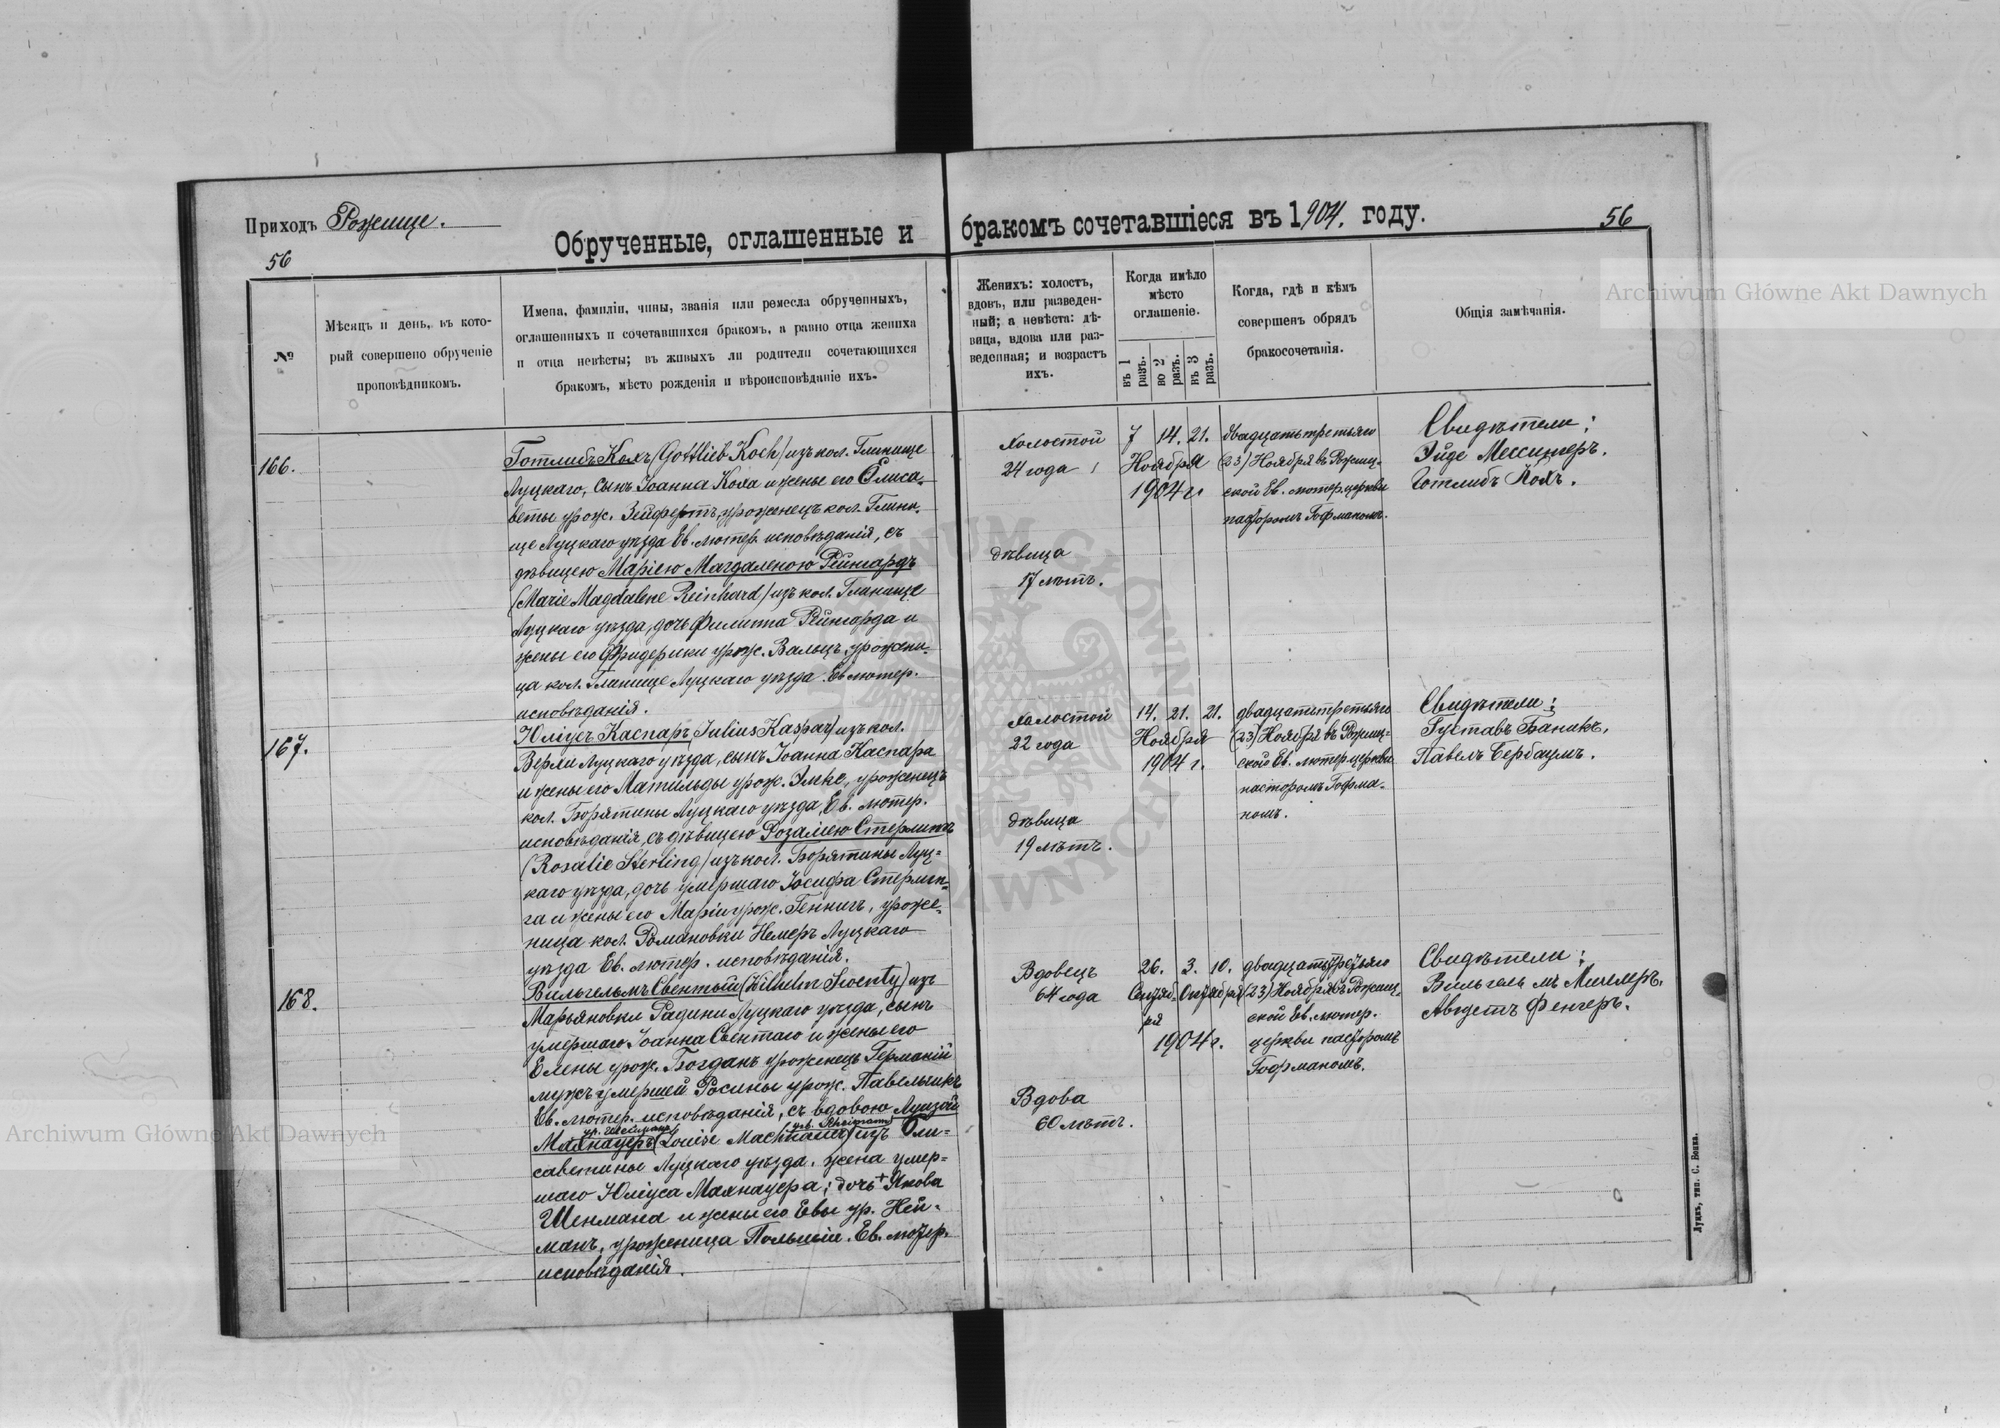 Приходъ Рожище.
56
Обрученные, оглашенные и бракомъ сочетавшіеся въ 1904. году.
56
№
Мѣсяцъ и день, въ кото-
рый совершено обрученіе
проповѣдникомъ.
Имена, фамиліи, чины, званія или ремесла обрученныхъ,
оглашенныхъ и сочетавшихся бракомъ, а равно отца жениха
и отца невѣсты; въ живыхъ ли родители сочетающихся
бракомъ, мѣсто рожденія и вѣроисповѣданіе ихъ.
Женихъ: холостъ,
вдовъ, или разведен-
ный; а невѣста: дѣ-
вица, вдова или раз-
веденная; и возрастъ
ихъ.
Когда имѣло
мѣсто
оглашеніе.
въ 1 разъ.
во 2 разъ.
въ 3 разъ.
Когда, гдѣ и кѣмъ
совершенъ обрядъ
бракосочетанія.
Общія замѣчанія.
166.
Готлибъ Кохъ (Gottlieb Koch) изъ кол. Глинище
Луцкаго, сынъ Іоанна Коха и жены его Елиса-
веты урож. Зейфертъ, уроженецъ кол. Глини-
ще Луцкаго уѣзда Ев. лютер. исповѣданія, съ
дѣвицею Маріею Магдаленою Рейнгардъ
(Marie Magdalene Reinhard) изъ кол. Глинище
Луцкаго уѣзда, дочь Филиппа Рейнгарда и
жены его Фридерики урож. Вальцъ, урожени-
ца кол. Глинище Луцкаго уѣзда Ев. лютер.
исповѣданія.
Холостой
24 года
дѣвица
17 лѣтъ.
7 14. 21.
Ноября
1904 г.
двадцать третьяго
(23) Ноября въ Рожищ-
ской Ев. лютер. церкви
пасторомъ Гофманомъ.
Свидѣтели:
Эйде Мессингеръ.
Готлибъ Кохъ.
167.
Юліусъ Каспаръ (Julius Kaspar) изъ кол.
Верли Луцкаго уѣзда, сынъ Іоанна Каспара
и жены его Матильды урож. Элке, уроженецъ
кол. Борятины Луцкаго уѣзда, Ев. лютер.
исповѣданія, съ дѣвицею Розаліею Стерлингъ
(Rosalie Sterling) изъ кол. Борятины Луц-
каго уѣзда, дочь умершаго Іосифа Стерлин-
га и жены его Маріи урож. Геннигъ, уроже-
ница кол. Романовки Немеръ Луцкаго
уѣзда Ев. лютер. исповѣданія.
Холостой
22 года
дѣвица
19 лѣтъ.
14. 21. 21.
Ноября
1904 г.
двадцать третьяго
(23) Ноября въ Рожищ-
ской Ев. лютер. церкви
пасторомъ Гофма-
номъ.
Свидѣтели:
Густавъ Баникъ,
Павелъ Сербаумъ.
168.
Вильгельмъ Свентый (Wilhelm Swenty) изъ
Марьяновки Радини Луцкаго уѣзда, сынъ
умершаго Іоанна Свентаго и жены его
Елены урож. Богданъ уроженецъ Германіи
мужъ умершей Росины урож. Павельчикъ
Ев. лютер. исповѣданія, съ вдовою Луизой
ур. Шенманъ
Махнауеръ (Louise Machnauer) изъ Ели-
саветины Луцкаго уѣзда, жена умер-
шаго Юліуса Махнауера; дочь + Якова
Шенмана и жены его Евы ур. Ней-
манъ, уроженица Польши. Ев. лютер.
исповѣданія.
Вдовецъ
64 года
Вдова
60 лѣтъ.
26. 3. 10.
Сентяб- Октября
ря
1904 г.
двадцать третьяго
(23) Ноября въ Рожищ-
ской Ев. лютер.
церкви пасторомъ
Гофманомъ.
Свидѣтели:
Вильгельмъ Миллеръ.
Августъ Фенгеръ.
Луцкъ, тип. С. Бонка.
Archiwum Główne Akt Dawnych
Archiwum Główne Akt Dawnych
ARCHIWUM GŁÓWNE AKT DAWNYCH